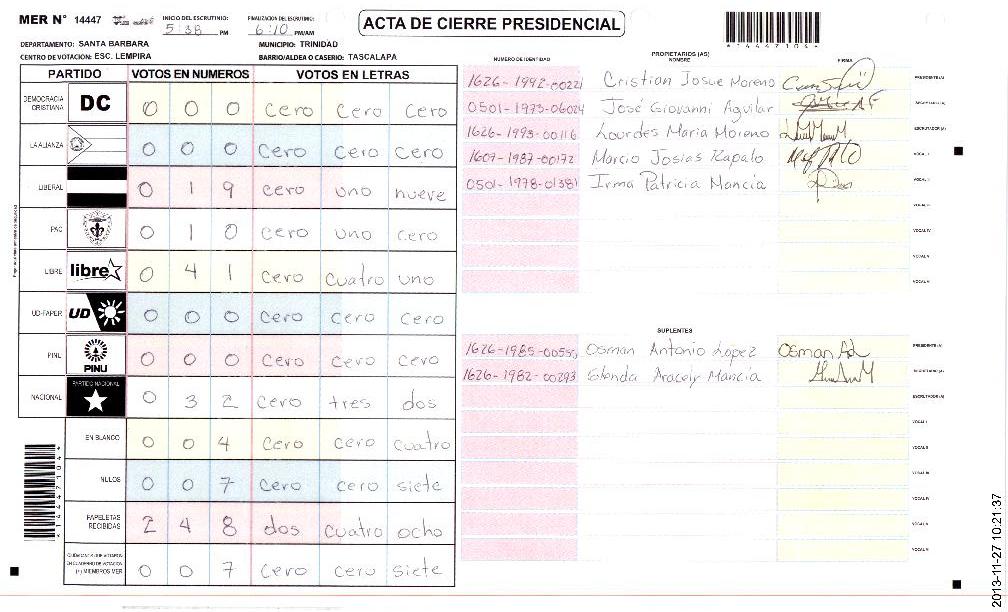 MER Nº 14447
INICIO DEL ESCRUTINIO: 5:38 PM
FINALIZACION DEL ESCRUTINIO: 6:10 PM/AM
ACTA DE CIERRE PRESIDENCIAL
*14447104*
DEPARTAMENTO: SANTA BARBARA
MUNICIPIO: TRINIDAD
CENTRO DE VOTACION: ESC. LEMPIRA
BARRIO/ALDEA O CASERIO: TASCALAPA
PARTIDO VOTOS EN NUMEROS VOTOS EN LETRAS
DEMOCRACIA CRISTIANA DC 0 0 0 cero cero cero
LA ALIANZA 0 0 0 cero cero cero
LIBERAL 0 1 9 cero uno nueve
PAC 0 1 0 cero uno cero
LIBRE libre 0 4 1 cero cuatro uno
UD-FAPER UD 0 0 0 cero cero cero
PINU PINU 0 0 0 cero cero cero
NACIONAL PARTIDO NACIONAL 0 3 2 cero tres dos
EN BLANCO 0 0 4 cero cero cuatro
NULOS 0 0 7 cero cero siete
PAPELETAS RECIBIDAS 2 4 8 dos cuatro ocho
EN CUADERNO DE VOTACION (+) MIEMBROS MER 0 0 7 cero cero siete
*14447104*
NUMERO DE IDENTIDAD PROPIETARIOS (AS) NOMBRE FIRMA
1626-1992-00221 Cristian Josue Moreno PRESIDENTE(A)
0501-1973-06024 José Giovanni Aguilar SECRETARIO(A)
1626-1993-00116 Lourdes Maria Moreno ESCRUTADOR(A)
1607-1987-00172 Marcio Josias Rapalo VOCAL I
0501-1978-01381 Irma Patricia Mancia VOCAL II
VOCAL III
VOCAL IV
VOCAL V
VOCAL VI
SUPLENTES
1626-1985-00555 Osman Antonio Lopez PRESIDENTE(A)
1626-1982-00293 Glenda Aracely Mancia SECRETARIO(A)
ESCRUTADOR(A)
VOCAL I
VOCAL II
VOCAL III
VOCAL IV
VOCAL V
VOCAL VI
2013-11-27 10:21:37